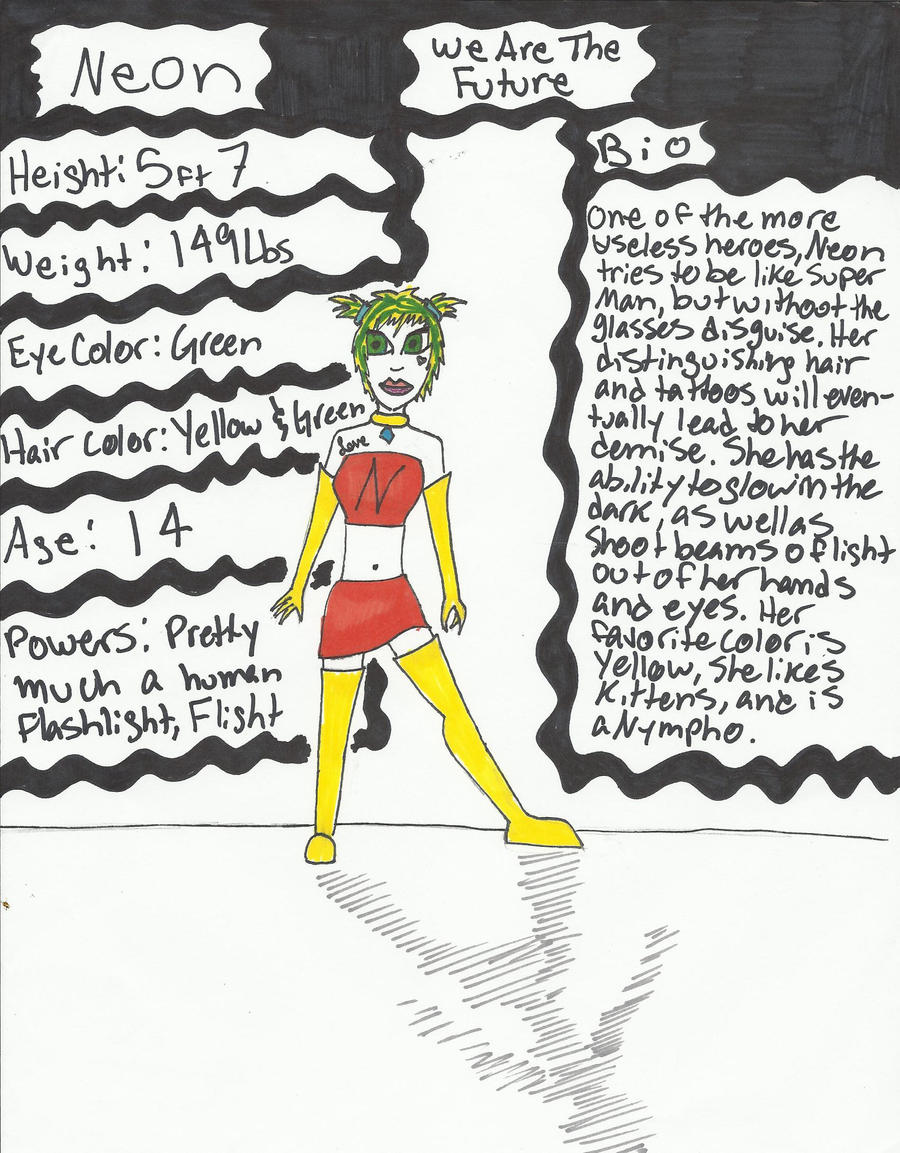 Neon
We Are The
Future
Height: 5ft 7
Weight: 149Lbs
Eye Color: Green
Hair Color: Yellow & Green
Age: 14
Powers: Pretty
much a human
Flashlight, Flight
Love
N
Bio
One of the more
useless heroes, Neon
tries to be like Super
Man, but without the
glasses disguise. Her
distinguishing hair
and tattoos will even-
tually lead to her
demise. She has the
ability to glow in the
dark, as well as
shoot beams of light
out of her hands
and eyes. Her
favorite color is
Yellow, She likes
Kittens, and is
a Nympho.